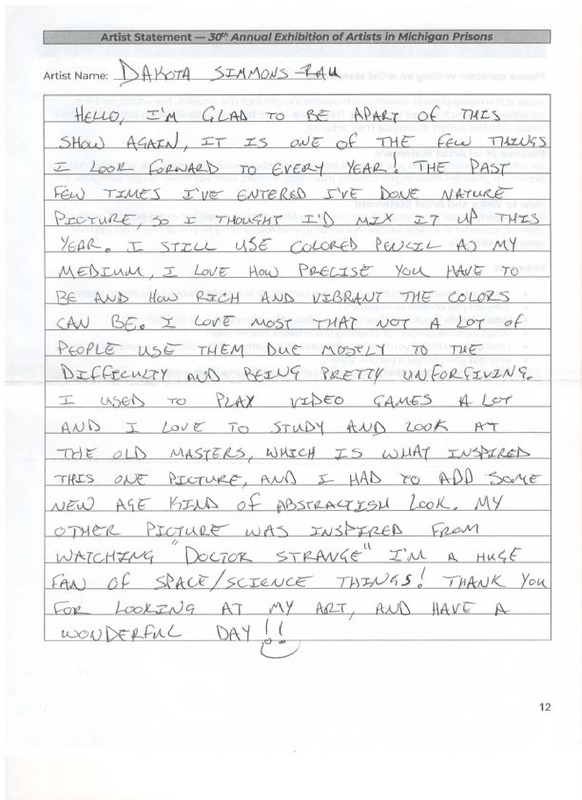 Artist Statement — 30th Annual Exhibition of Artists in Michigan Prisons
Artist Name: DAKOTA SIMMONS-RAU
HELLO, I'M GLAD TO BE APART OF THIS
SHOW AGAIN, IT IS ONE OF THE FEW THINGS
I LOOK FORWARD TO EVERY YEAR! THE PAST
FEW TIMES I'VE ENTERED I'VE DONE NATURE
PICTURE, SO I THOUGHT I'D MIX IT UP THIS
YEAR. I STILL USE COLORED PENCIL AS MY
MEDIUM, I LOVE HOW PRECISE YOU HAVE TO
BE AND HOW RICH AND VIBRANT THE COLORS
CAN BE. I LOVE MOST THAT NOT A LOT OF
PEOPLE USE THEM DUE MOSTLY TO THE
DIFFICULTY AND BEING PRETTY UNFORGIVING.
I USED TO PLAY VIDEO GAMES A LOT
AND I LOVE TO STUDY AND LOOK AT
THE OLD MASTERS, WHICH IS WHAT INSPIRED
THIS ONE PICTURE, AND I HAD TO ADD SOME
NEW AGE KIND OF ABSTRACTISH LOOK. MY
OTHER PICTURE WAS INSPIRED FROM
WATCHING "DOCTOR STRANGE" I'M A HUGE
FAN OF SPACE/SCIENCE THINGS! THANK YOU
FOR LOOKING AT MY ART, AND HAVE A
WONDERFUL DAY!!
12